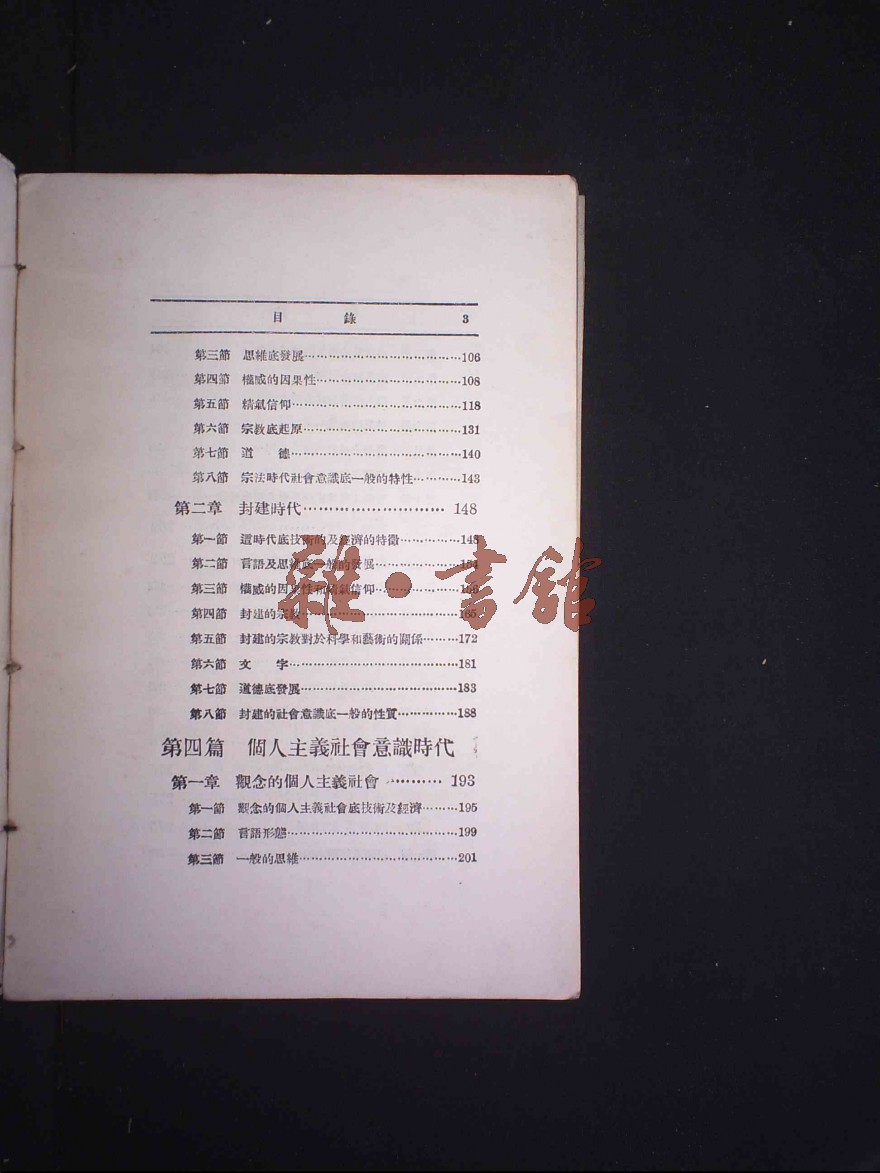 目　錄　3
第三節　思維底發展…………………………………106
第四節　權威的因果性………………………………108
第五節　精氣信仰……………………………………118
第六節　宗教底起原…………………………………131
第七節　道　德………………………………………140
第八節　宗法時代社會意識底一般的特性…………143
第二章　封建時代………………………… 148
第一節　這時代底技術的及經濟的特徵……………148
第二節　言語及思維底一般的發展…………………154
第三節　權威的因果性和精氣信仰…………………156
第四節　封建的宗教…………………………………165
第五節　封建的宗教對於科學和藝術的關係………172
第六節　文　字………………………………………181
第七節　道德底發展…………………………………183
第八節　封建的社會意識底一般的性質……………188
雜·書館
第四篇　個人主義社會意識時代
第一章　觀念的個人主義社會………… 193
第一節　觀念的個人主義社會底技術及經濟………195
第二節　言語形態……………………………………199
第三節　一般的思維…………………………………201